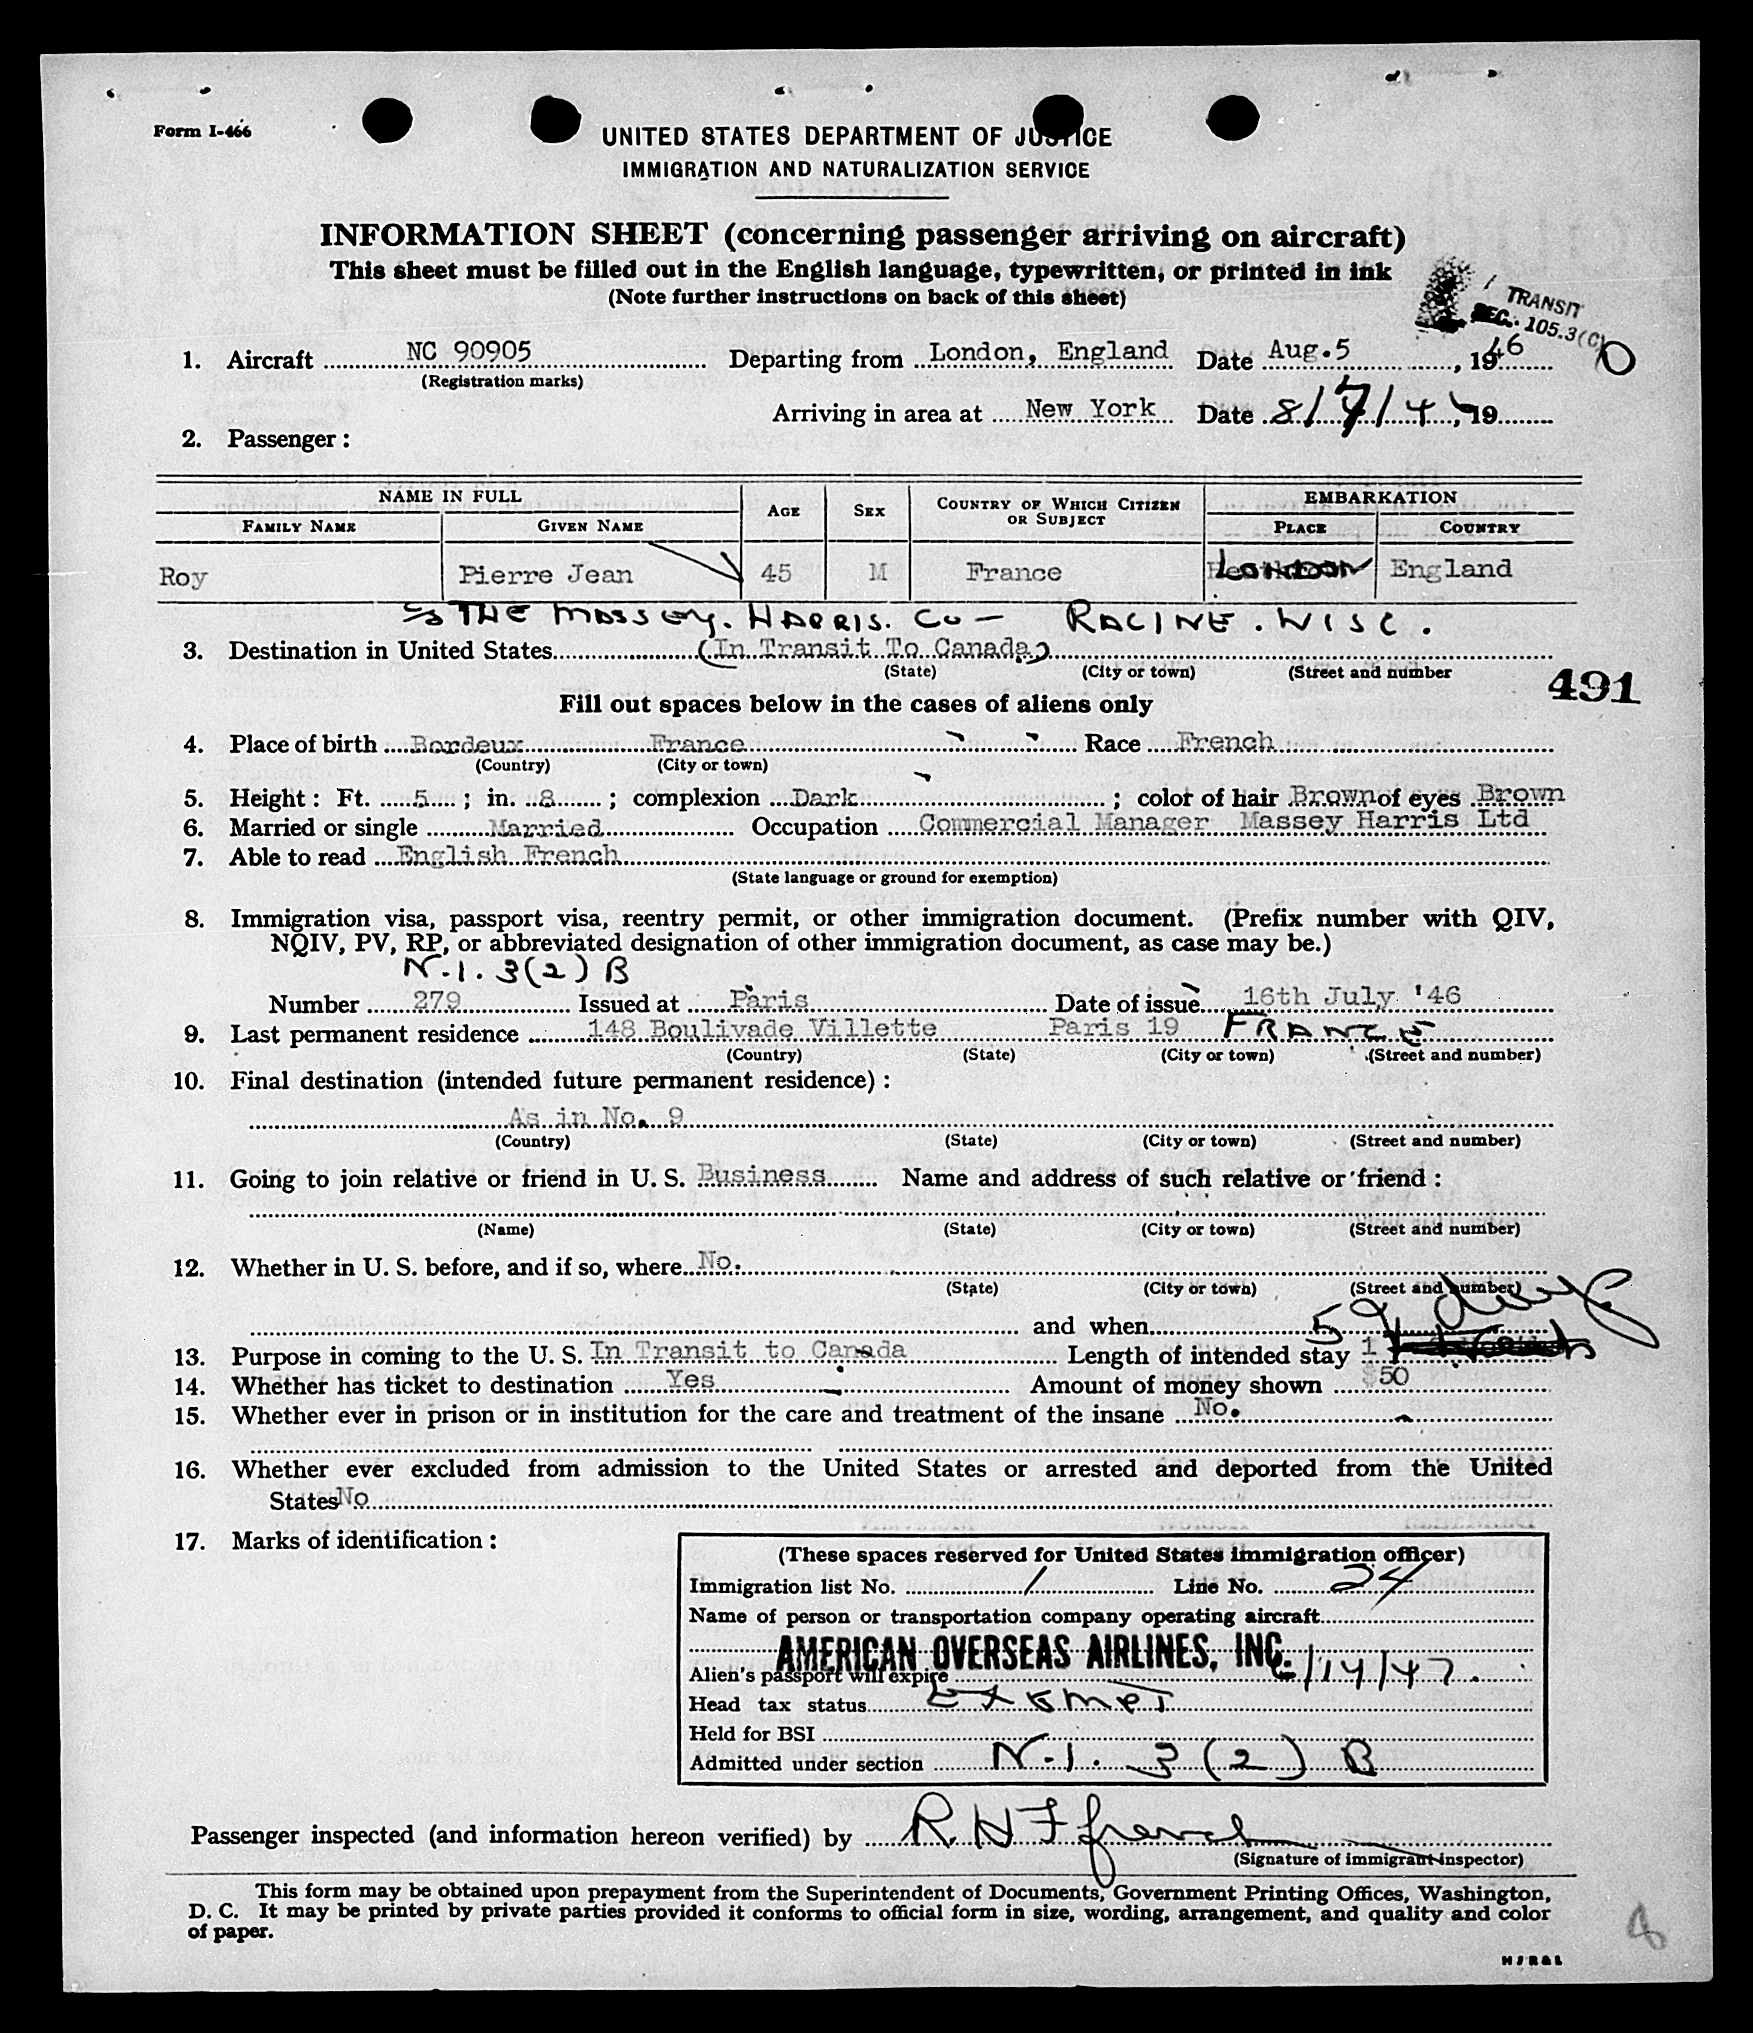 Form I-466
UNITED STATES DEPARTMENT OF JUSTICE
IMMIGRATION AND NATURALIZATION SERVICE
INFORMATION SHEET (concerning passenger arriving on aircraft)
This sheet must be filled out in the English language, typewritten, or printed in ink
(Note further instructions on back of this sheet)
TRANSIT
SEC. 105.3(C)
1. Aircraft NC 90905 Departing from London, England Date Aug.5, 1946
(Registration marks)
Arriving in area at New York Date 8/7/4, 19
2. Passenger:
NAME IN FULL AGE SEX COUNTRY OF WHICH CITIZEN OR SUBJECT EMBARKATION
FAMILY NAME GIVEN NAME PLACE COUNTRY
Roy Pierre Jean 45 M France LONDON England
THE MASSEY. HARRIS. CO - RACINE. WISC.
3. Destination in United States (In Transit To Canada)
(State) (City or town) (Street and number
491
Fill out spaces below in the cases of aliens only
4. Place of birth Bordeux France Race French
(Country) (City or town)
5. Height: Ft. 5; in. 8; complexion Dark; color of hair Brown of eyes Brown
6. Married or single Married Occupation Commercial Manager Massey Harris Ltd
7. Able to read English French
(State language or ground for exemption)
8. Immigration visa, passport visa, reentry permit, or other immigration document. (Prefix number with QIV,
NQIV, PV, RP, or abbreviated designation of other immigration document, as case may be.)
N.I. 3(2) B
Number 279 Issued at Paris Date of issue 16th July '46
9. Last permanent residence 148 Boulivade Villette Paris 19 FRANCE
(Country) (State) (City or town) (Street and number)
10. Final destination (intended future permanent residence):
As in No. 9
(Country) (State) (City or town) (Street and number)
11. Going to join relative or friend in U. S. Business Name and address of such relative or friend:
(Name) (State) (City or town) (Street and number)
12. Whether in U. S. before, and if so, where No.
(State) (City or town) (Street and number)
and when 59 days
13. Purpose in coming to the U. S. In Transit to Canada Length of intended stay 1
14. Whether has ticket to destination Yes Amount of money shown $50
15. Whether ever in prison or in institution for the care and treatment of the insane No.
16. Whether ever excluded from admission to the United States or arrested and deported from the United
States No
17. Marks of identification:
(These spaces reserved for United States immigration officer)
Immigration list No. 1 Line No. 24
Name of person or transportation company operating aircraft
AMERICAN OVERSEAS AIRLINES, INC.
Alien's passport will expire 6/14/47.
Head tax status Exempt
Held for BSI
Admitted under section N.I. 3(2) B
Passenger inspected (and information hereon verified) by
(Signature of immigrant inspector)
This form may be obtained upon prepayment from the Superintendent of Documents, Government Printing Offices, Washington,
D. C. It may be printed by private parties provided it conforms to official form in size, wording, arrangement, and quality and color
of paper.
8